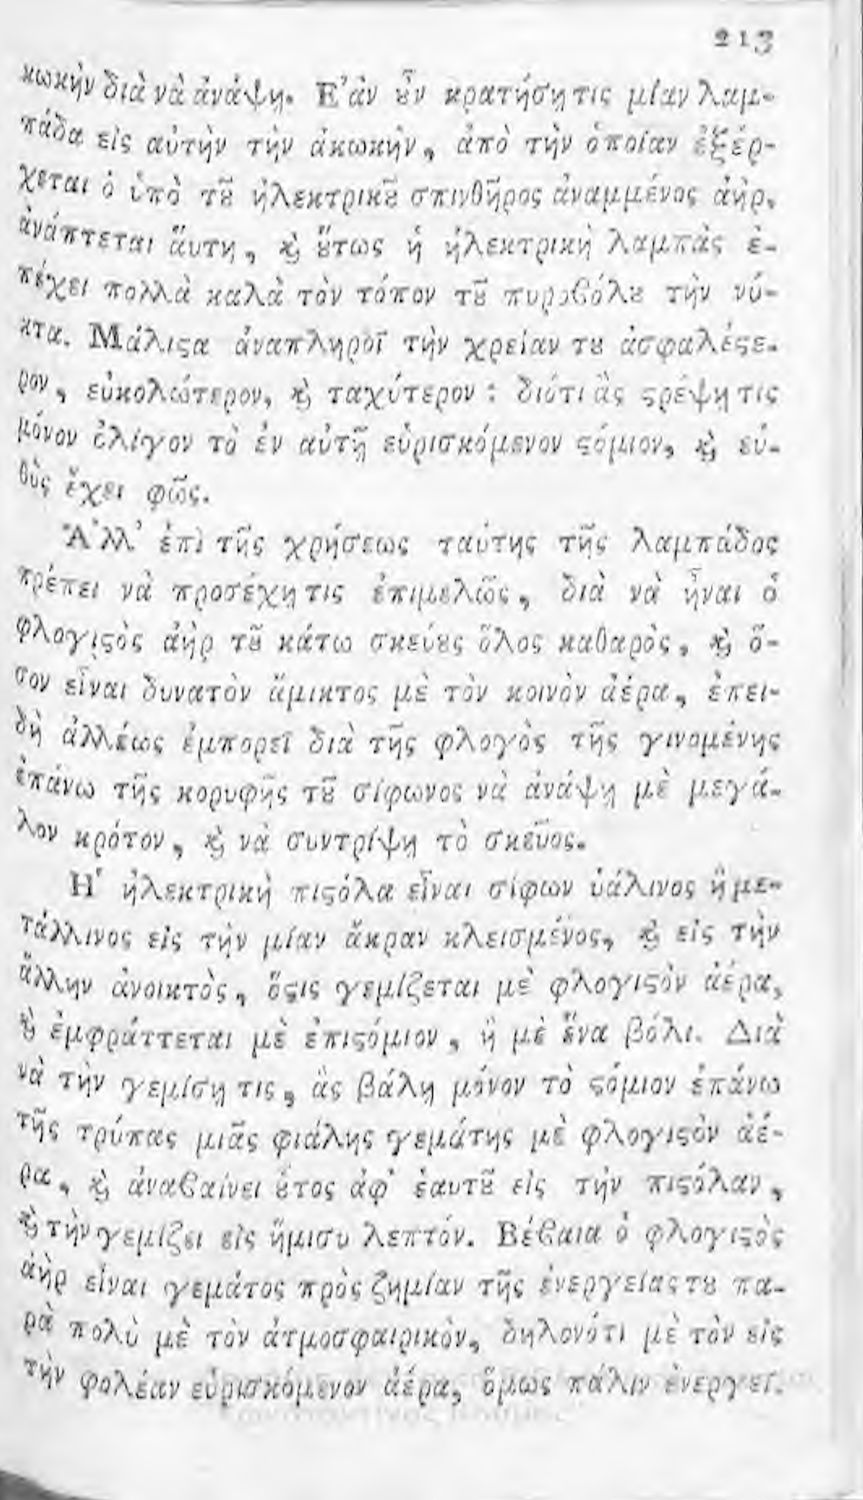 213
κωκὴν διὰ νὰ ἀνάψῃ. Ἐὰν ȣ̓ν κρατήσῃ τις μίαν λαμ-
πάδα εἰς αὐτὴν τὴν ἀκωκὴν, ἀπὸ τὴν ὁποίαν ἐξέρ-
χεται ὁ ὑπὸ τȣ͂ ἠλεκτρικȣ͂ σπινθῆρος ἀναμμένος ἀὴρ,
ἀνάπτεται αὕτη, ϗ̀ ȣ̔́τως ἡ ἠλεκτρικὴ λαμπὰς ἐ-
πέχει πολλὰ καλὰ τὸν τόπον τȣ͂ πυροβόλȣ τὴν νύ-
κτα. Μάλιϛα ἀναπληροῖ τὴν χρείαν τȣ ἀσφαλέϛε-
ρον, εὐκολώτερον, ϗ̀ ταχύτερον: διότι ἂς ϛρέψῃ τις
μόνον ὀλίγον τὸ ἐν αὐτῇ εὑρισκόμενον ϛόμιον, ϗ̀ εὐ-
θὺς ἔχει φῶς.
Ἀλλ' ἐπὶ τῆς χρήσεως ταύτης τῆς λαμπάδος
πρέπει νὰ προσέχῃ τις ἐπιμελῶς, διὰ νὰ ᾖναι ὁ
φλογιϛὸς ἀὴρ τȣ͂ κάτω σκεύȣς ὅλος καθαρὸς, ϗ̀ ὅ-
σον εἶναι δυνατὸν ἄμικτος μὲ τὸν κοινὸν ἀέρα, ἐπει-
δὴ ἀλλέως ἐμπορεῖ διὰ τῆς φλογὸς τῆς γινομένης
ἐπάνω τῆς κορυφῆς τȣ͂ σίφωνος νὰ ἀνάψῃ μὲ μεγά-
λον κρότον, ϗ̀ νὰ συντρίψῃ τὸ σκεῦος.
Ἡ ἠλεκτρικὴ πιϛόλα εἶναι σίφων ὑάλινος ἢ με-
τάλλινος εἰς τὴν μίαν ἄκραν κλεισμένος, ϗ̀ εἰς τὴν
ἄλλην ἀνοικτὸς, ὅϛις γεμίζεται μὲ φλογιϛὸν ἀέρα,
ϗ̀ ἐμφράττεται μὲ ἐπιϛόμιον, ἢ μὲ ἕνα βόλι. Διὰ
νὰ τὴν γεμίσῃ τις, ἂς βάλῃ μόνον τὸ ϛόμιον ἐπάνω
τῆς τρύπας μιᾶς φιάλης γεμάτης μὲ φλογιϛὸν ἀέ-
ρα, ϗ̀ ἀναβαίνει ȣ̔͂τος ἀφ' ἑαυτȣ͂ εἰς τὴν πιϛόλαν,
ϗ̀ τὴν γεμίζει εἰς ἥμισυ λεπτόν. Βέβαια ὁ φλογιϛὸς
ἀὴρ εἶναι γεμάτος πρὸς ζημίαν τῆς ἐνεργείας τȣ πα-
ρὰ πολὺ μὲ τὸν ἀτμοσφαιρικὸν, δηλονότι μὲ τὸν εἰς
τὴν φολέαν εὑρισκόμενον ἀέρα, ὅμως πάλιν ἐνεργεῖ.